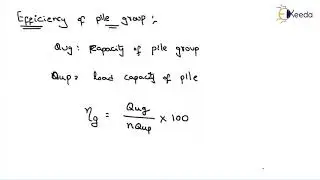 Efficiency of pile group:
Ekeeda
Qug: Capacity of pile group
Qup= load capacity of pile
ηg = Qug / nQup × 100